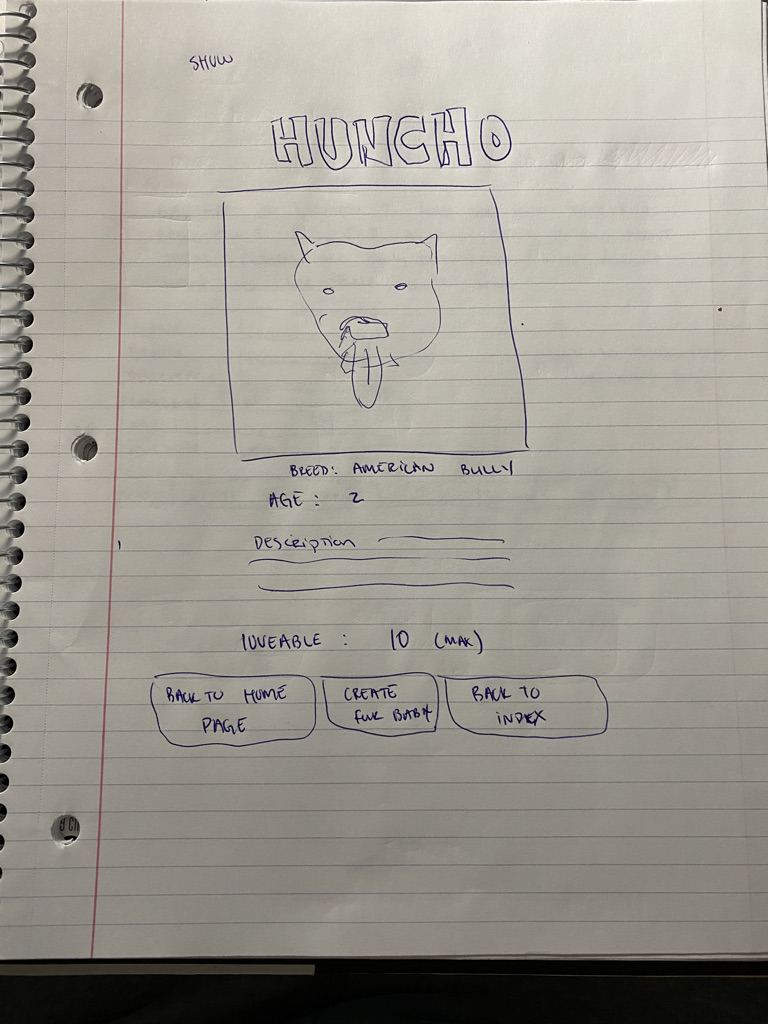 SHOW
HUNCHO
BREED: AMERICAN BULLY
AGE: 2
DESCRIPTION
LOVEABLE: 10 (MAX)
BACK TO HOME
PAGE
CREATE
FUR BABY
BACK TO
INDEX